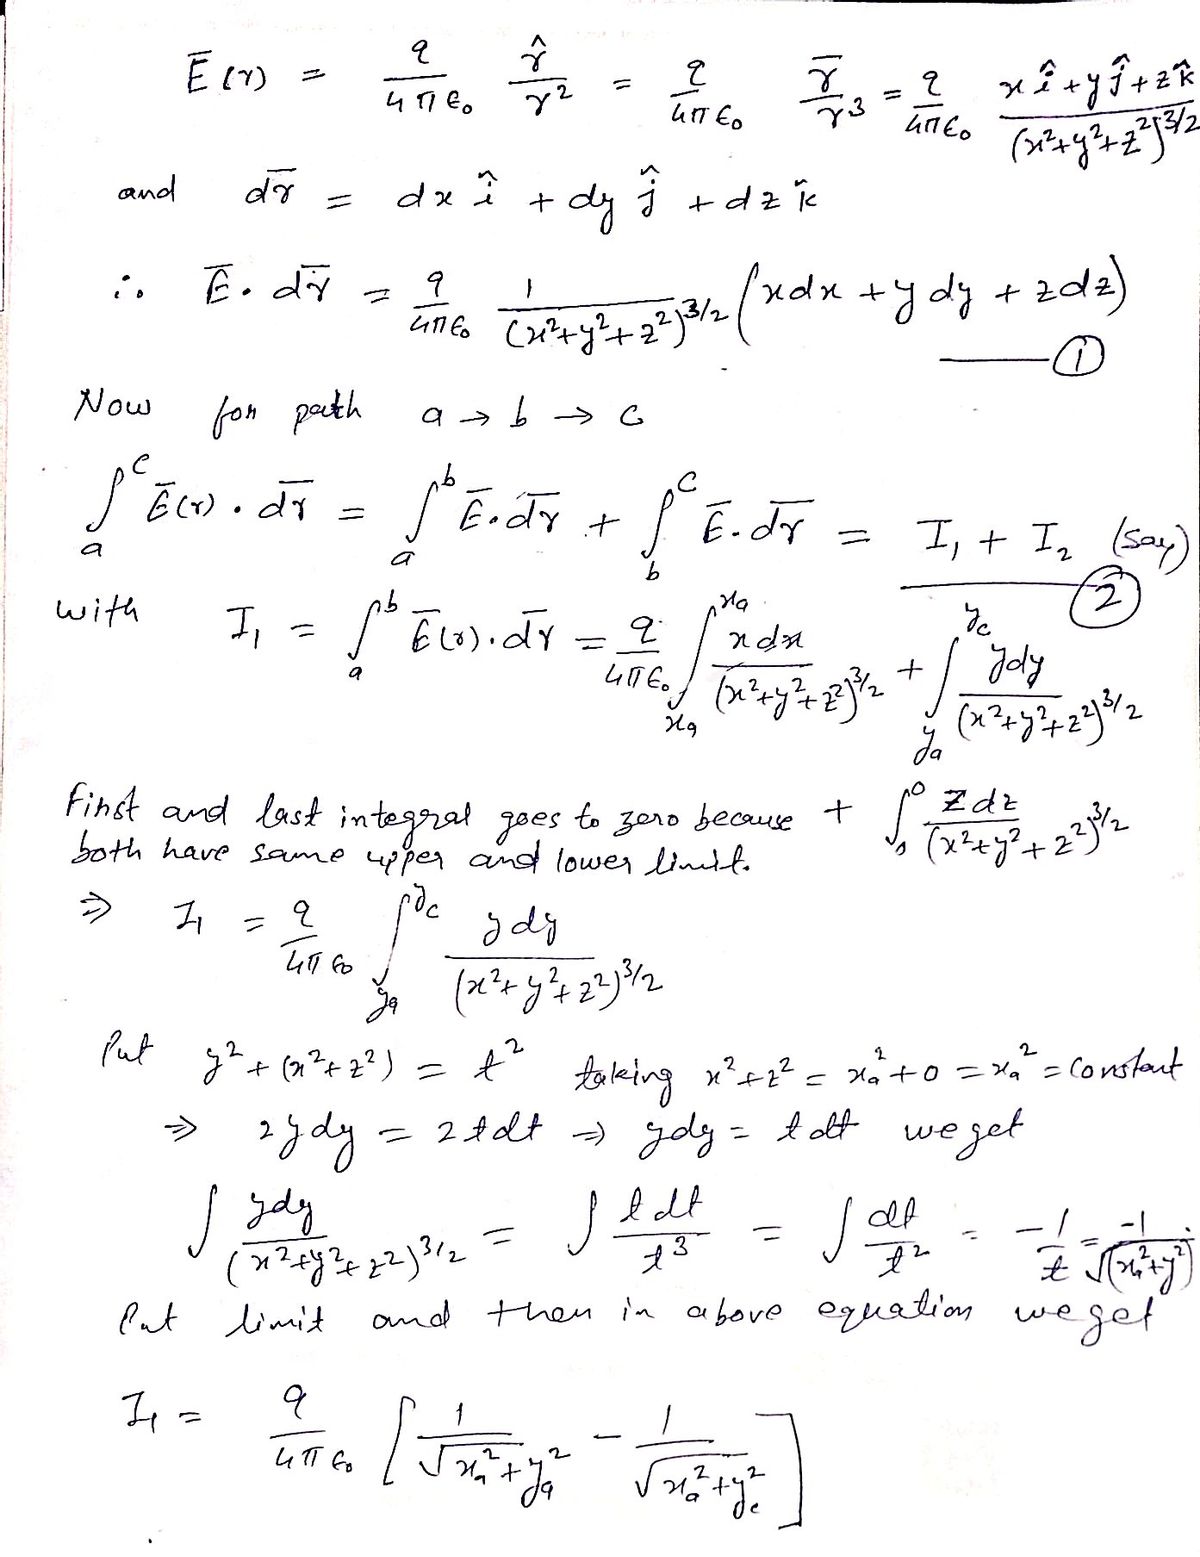 Ē(r) = q/4πϵ₀ r̂/r² = q/4πϵ₀ r̄/r³ = q/4πϵ₀ (x î + y ĵ + z k̂)/(x²+y²+z²)^3/2
and dr̄ = dx î + dy ĵ + dz k̂
∴ Ē . dr̄ = q/4πϵ₀ 1/(x²+y²+z²)^3/2 (xdx + y dy + zdz)
——— ①
Now for path a → b → c
∫ₐᶜ Ē(r) . dr̄ = ∫ₐᵇ Ē.dr̄ + ∫_b^c Ē.dr̄ = I₁ + I₂ (say)
②
with I₁ = ∫ₐᵇ Ē(r).dr̄ = q/4πϵ₀ ∫_{xₐ}^{xₐ} xdx/(x²+y²+z²)^3/2 + ∫_{yₐ}^{y_c} ydy/(x²+y²+z²)^3/2
First and last integral goes to zero because + ∫₀⁰ zdz/(x²+y²+z²)^3/2
both have same upper and lower limit.
⇒ I₁ = q/4πϵ₀ ∫_{yₐ}^{y_c} ydy/(x²+y²+z²)^3/2
Put y² + (x²+z²) = t² taking x²+z² = xₐ²+0 = xₐ² = constant
⇒ 2ydy = 2tdt ⇒ ydy = tdt we get
∫ ydy/(x²+y²+z²)^3/2 = ∫ tdt/t³ = ∫ dt/t² = -1/t = -1/√(xₐ²+y²)
Put limit and then in above equation we get
I₁ = q/4πϵ₀ [1/√xₐ²+yₐ² - 1/√xₐ²+y_c²]